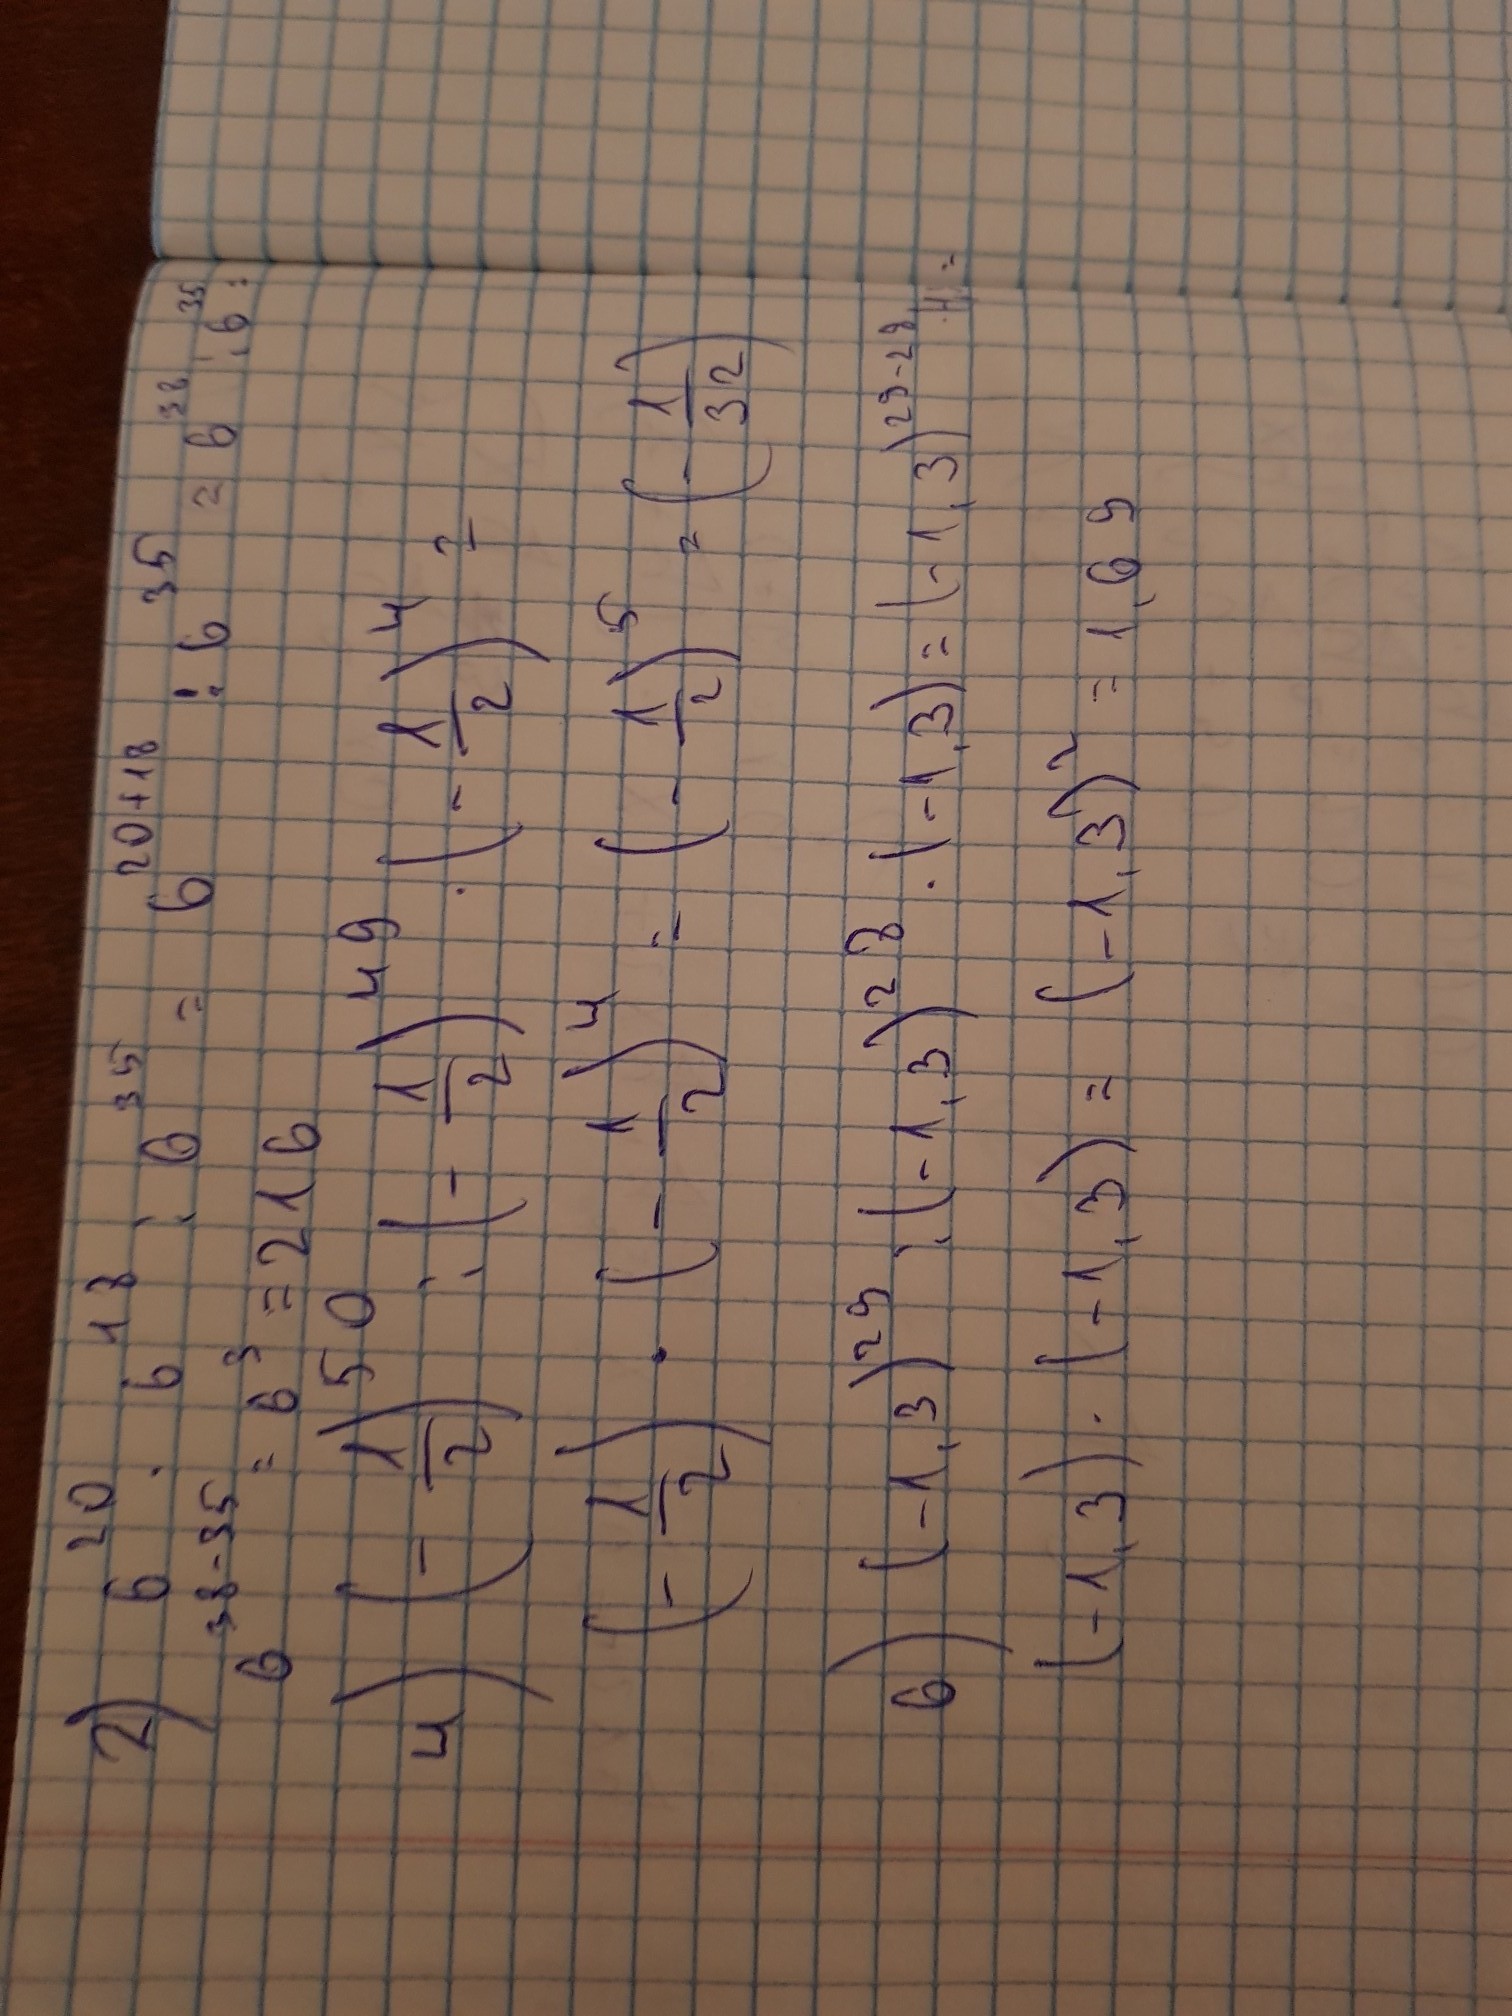 2) 6^20 · 6^18 : 6^35 = 6^20+18 : 6^35 = 6^38 : 6^35 =
6^38-35 = 6^3 = 216
4) (-1/2)^50 : (-1/2)^49 · (-1/2)^4 =
(-1/2) · (-1/2)^4 = (-1/2)^5 = (-1/32)
6) (-1,3)^29 : (-1,3)^28 · (-1,3) = (-1,3)^29-28 =
(-1,3) · (-1,3) = (-1,3)^2 = 1,69